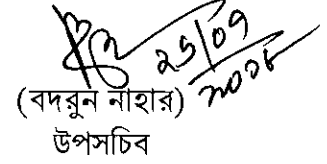 ২৫/০৭
২০১৮
(বদরুন নাহার)
উপসচিব